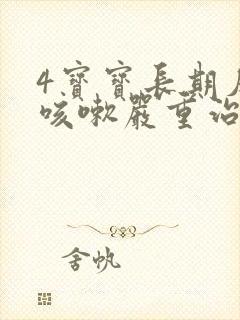 4寶寶長期
咳嗽嚴重治
舍帆